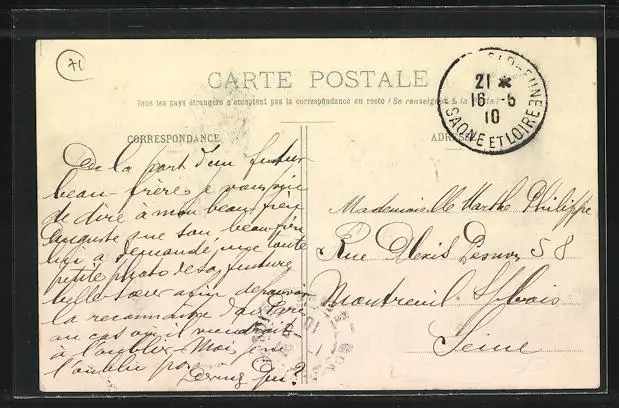 71
CARTE POSTALE
Tous les pays étrangers n'acceptent pas la correspondance au recto (Se renseigner à la Poste)
CORRESPONDANCE
ADRESSE
21 *
16 -5
10
SAONE ET LOIRE
De la part d'un futur
beau-frère
de dire à mon beau frère
Auguste que son beau frère
lui a demandé une toute
petite photo de sa future
belle sœur afin de pouvoir
la reconnaître
au cas où il viendrait
à l'oublier Mais
l'oublie pas
Devine Qui?
Mademoiselle Marthe Philippe
Rue Alexis Pesnon 58
Montreuil s/ Bois
Seine